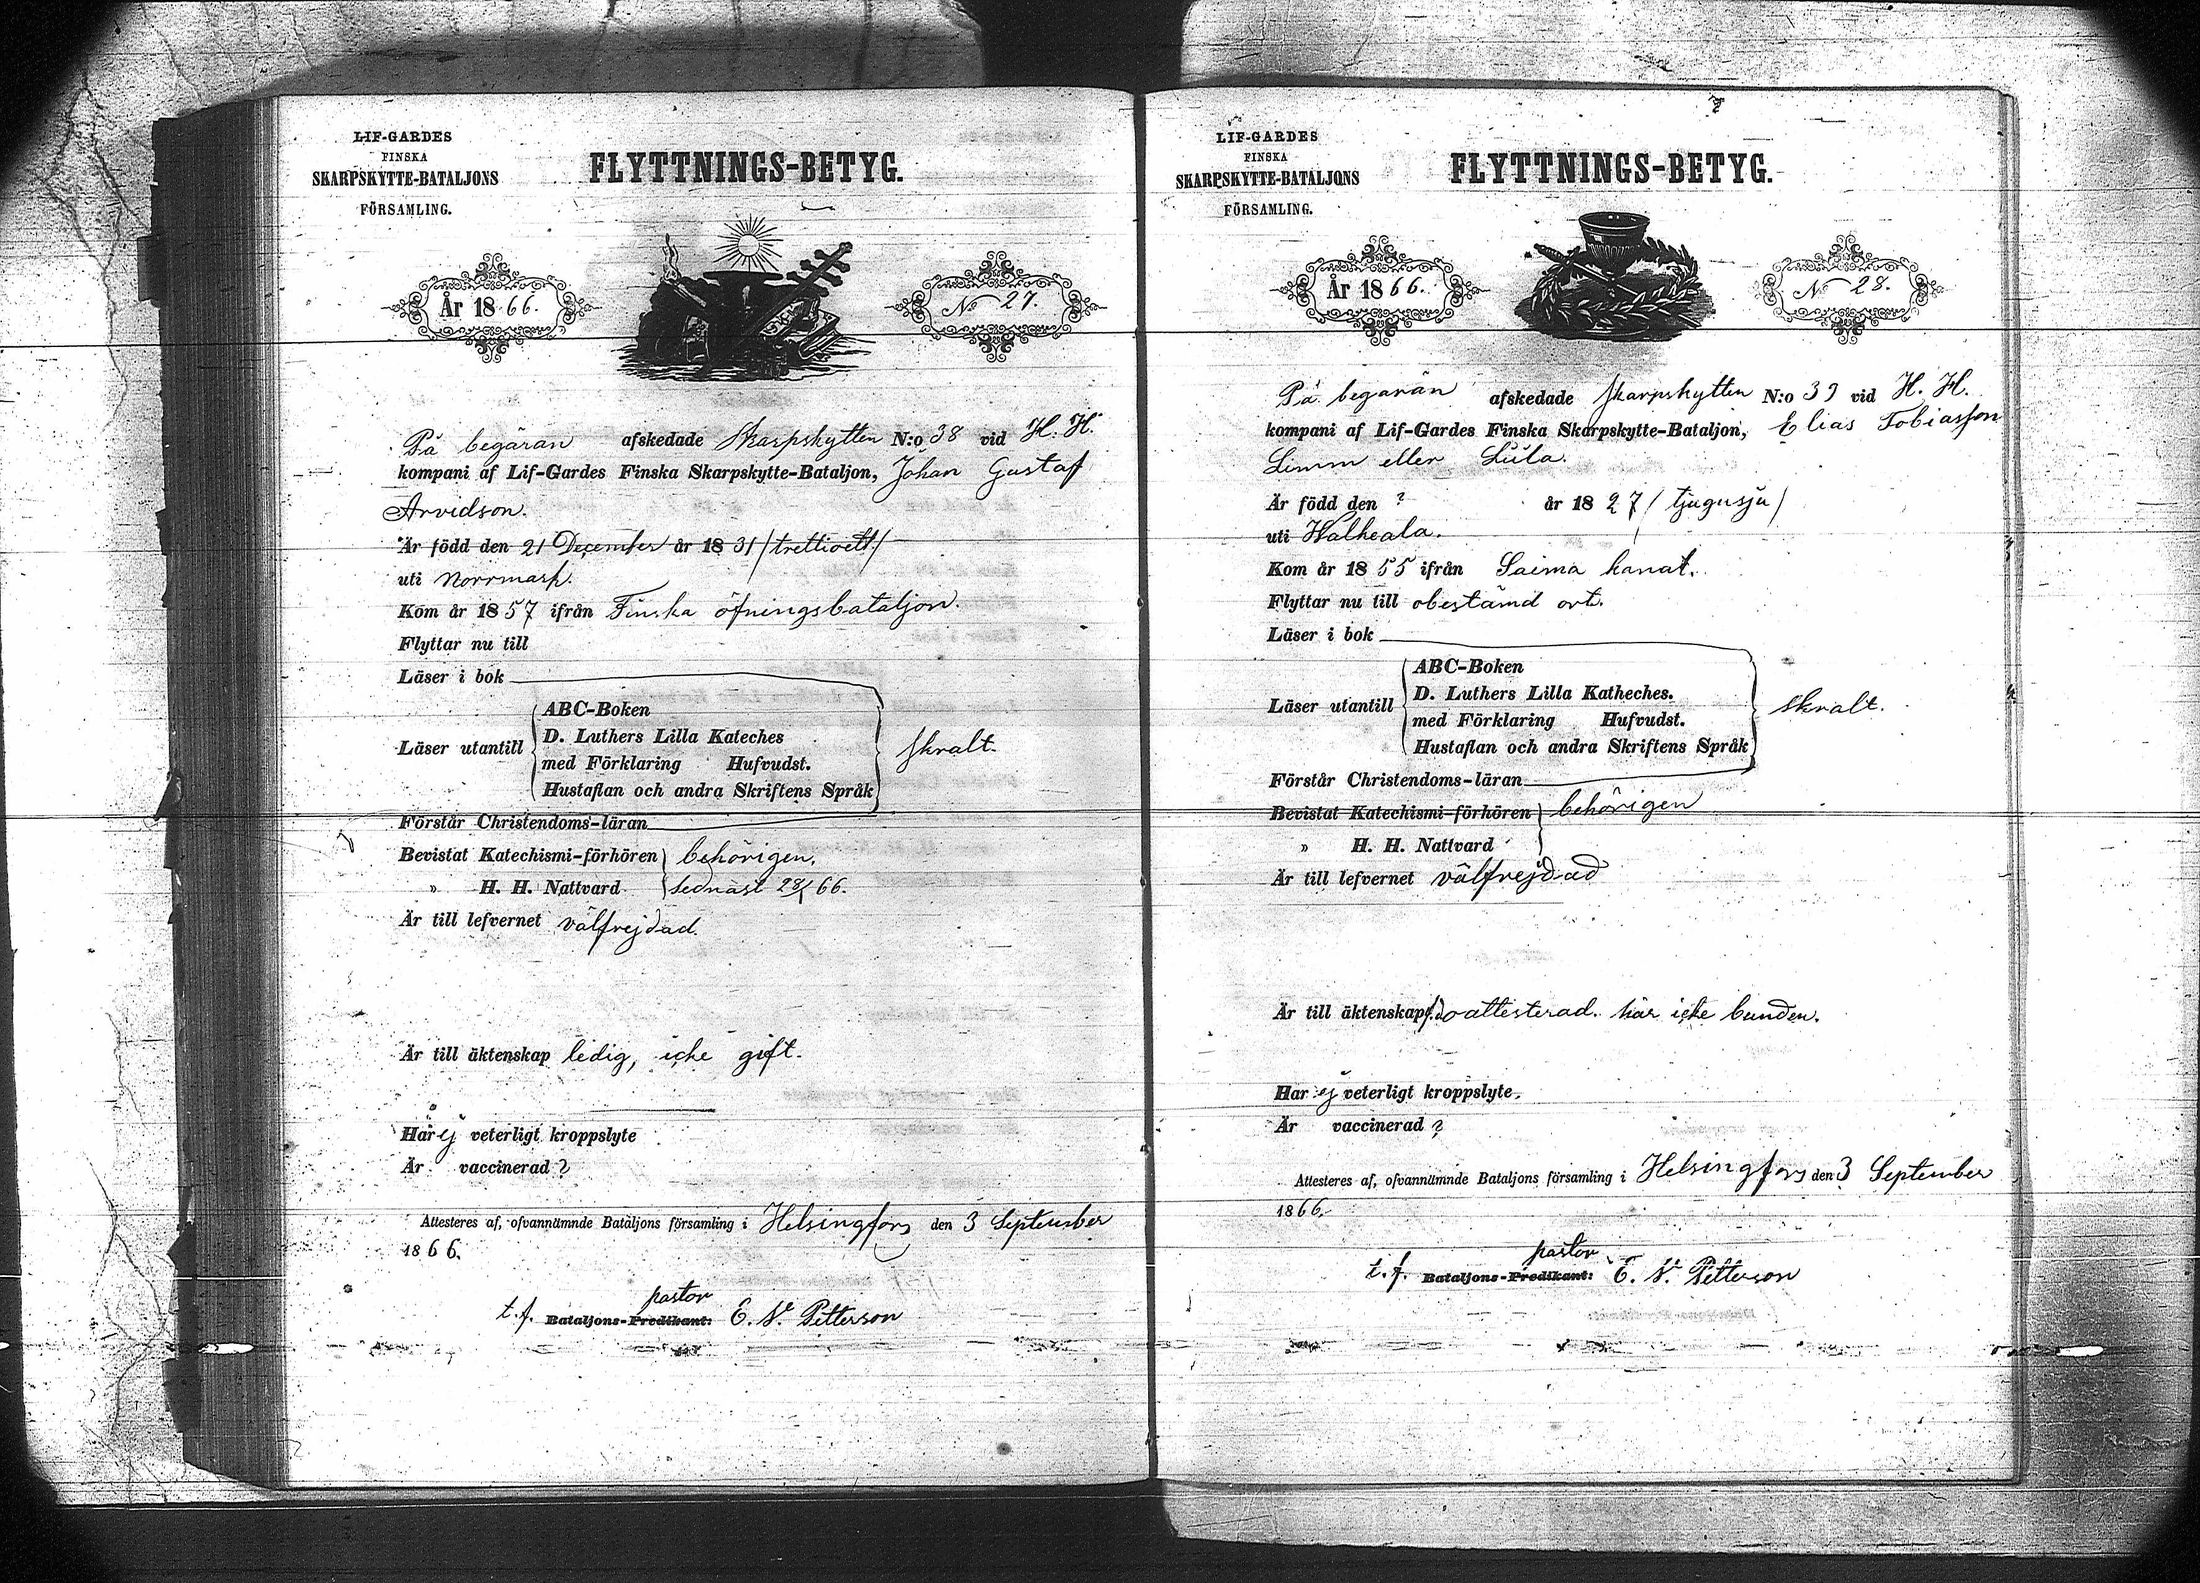 LIF-GARDES
FINSKA
SKARPSKYTTE-BATALJONS
FÖRSAMLING.
FLYTTNINGS-BETYG.
År 1866.
No 27.
På begäran afskedade Skarpskytten N:o 38 vid H. H.
kompani af Lif-Gardes Finska Skarpskytte-Bataljon, Johan Gustaf
Arvidson.
Är född den 21 December år 1831 / trettioett /
uti Norrmark.
Kom år 1857 ifrån Finska öfningsbataljon.
Flyttar nu till
Läser i bok
ABC-Boken
D. Luthers Lilla Kateches
Läser utantill
med Förklaring Hufvudst.
skralt.
Hustaflan och andra Skriftens Språk
Förstår Christendoms-läran
Bevistat Katechismi-förhören behörigen,
» H. H. Nattvard sednast 66.
Är till lefvernet välfrejdad.
Är till äktenskap ledig, icke gift.
Har ej veterligt kroppslyte
Är vaccinerad ?
Attesteres af, ofvannämnde Bataljons församling i Helsingfors den 3 September
1866.
pastor
t.f. Bataljons-Predikant: E. W. Petterson
LIF-GARDES
FINSKA
SKARPSKYTTE-BATALJONS
FÖRSAMLING.
FLYTTNINGS-BETYG.
År 1866.
No 28.
På begäran afskedade Skarpskytten N:o 39 vid H. H.
kompani af Lif-Gardes Finska Skarpskytte-Bataljon, Elias Tobiasson
Limm eller Lula.
Är född den ? år 1827 / tjugusju /
uti Walkeala.
Kom år 1855 ifrån Saima kanal.
Flyttar nu till obestämd ort.
Läser i bok
ABC-Boken
D. Luthers Lilla Katheches.
Läser utantill
med Förklaring Hufvudst.
skralt.
Hustaflan och andra Skriftens Språk
Förstår Christendoms-läran
Bevistat Katechismi-förhören behörigen
» H. H. Nattvard
Är till lefvernet välfrejdad
Är till äktenskap oattesterad. här icke bunden.
Har ej veterligt kroppslyte.
Är vaccinerad ?
Attesteres af, ofvannämnde Bataljons församling i Helsingfors den 3 September
1866.
pastor
t.f. Bataljons-Predikant: E. W. Petterson